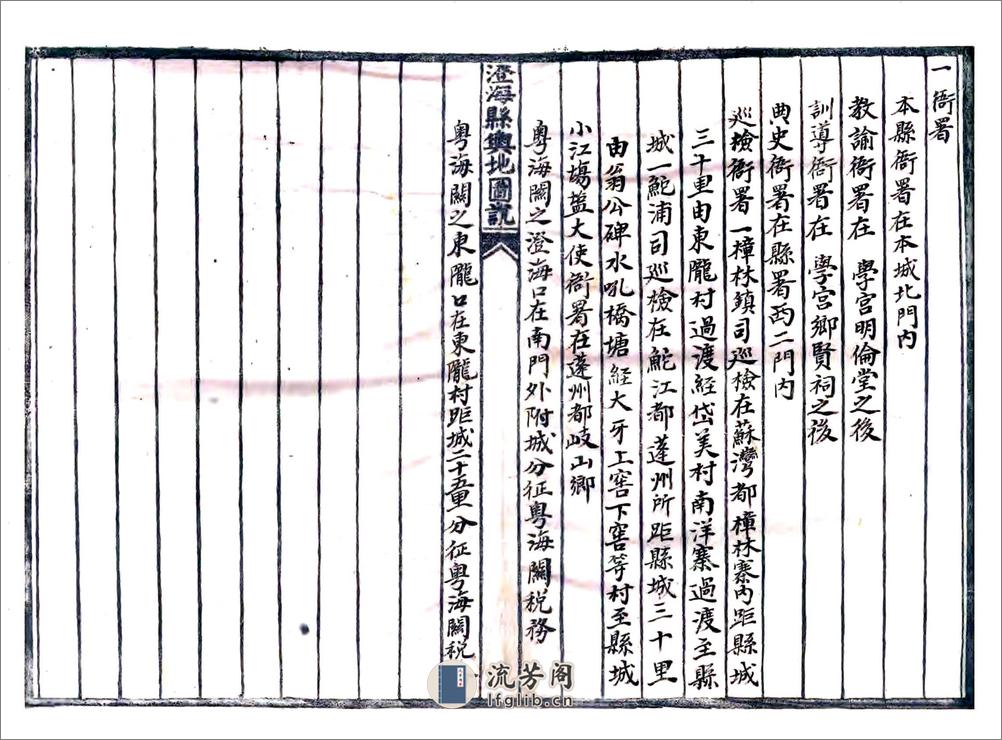 一衙署
本縣衙署在本城北門內
教諭衙署在 學宮明倫堂之後
訓導衙署在 學宮鄉賢祠之後
典史衙署在縣署西二門內
巡檢衙署一樟林鎮司巡檢在蘇灣都樟林寨內距縣城
三十里由東隴村過渡經岱美村南洋寨過渡至縣
城一鮀浦司巡檢在鮀江都蓬州所距縣城三十里
由翁公碑水吼橋塘經大牙上窖下窖等村至縣城
小江場盐大使衙署在蓬州都岐山鄉
粵海關之澄海口在南門外附城分征粵海關稅務
澄海縣輿地圖說
粵海關之東隴口在東隴村距城二十五里分征粵海關稅
流芳阁
lfglib.cn